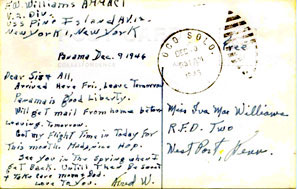 F.W. Williams AMM2C1
V.R. Div.
USS Pine Island AV12
New York 1, New York
Panama Dec. 9 1946
Dear Sis & All,
Arrived Here Fri. Leave Tomorrow
Panama is Good Liberty.
Will get mail from home before
leaving. Tomorrow.
Got my Flight Time in Today for
This month.
See you in The Spring when I
get Back. Until Then Be Sweet
& Take care
Love To You. W.
COCO SOLO.
DEC
Free
Miss Iva Mae Williams
R.F.D. Two
West Port, Tenn.